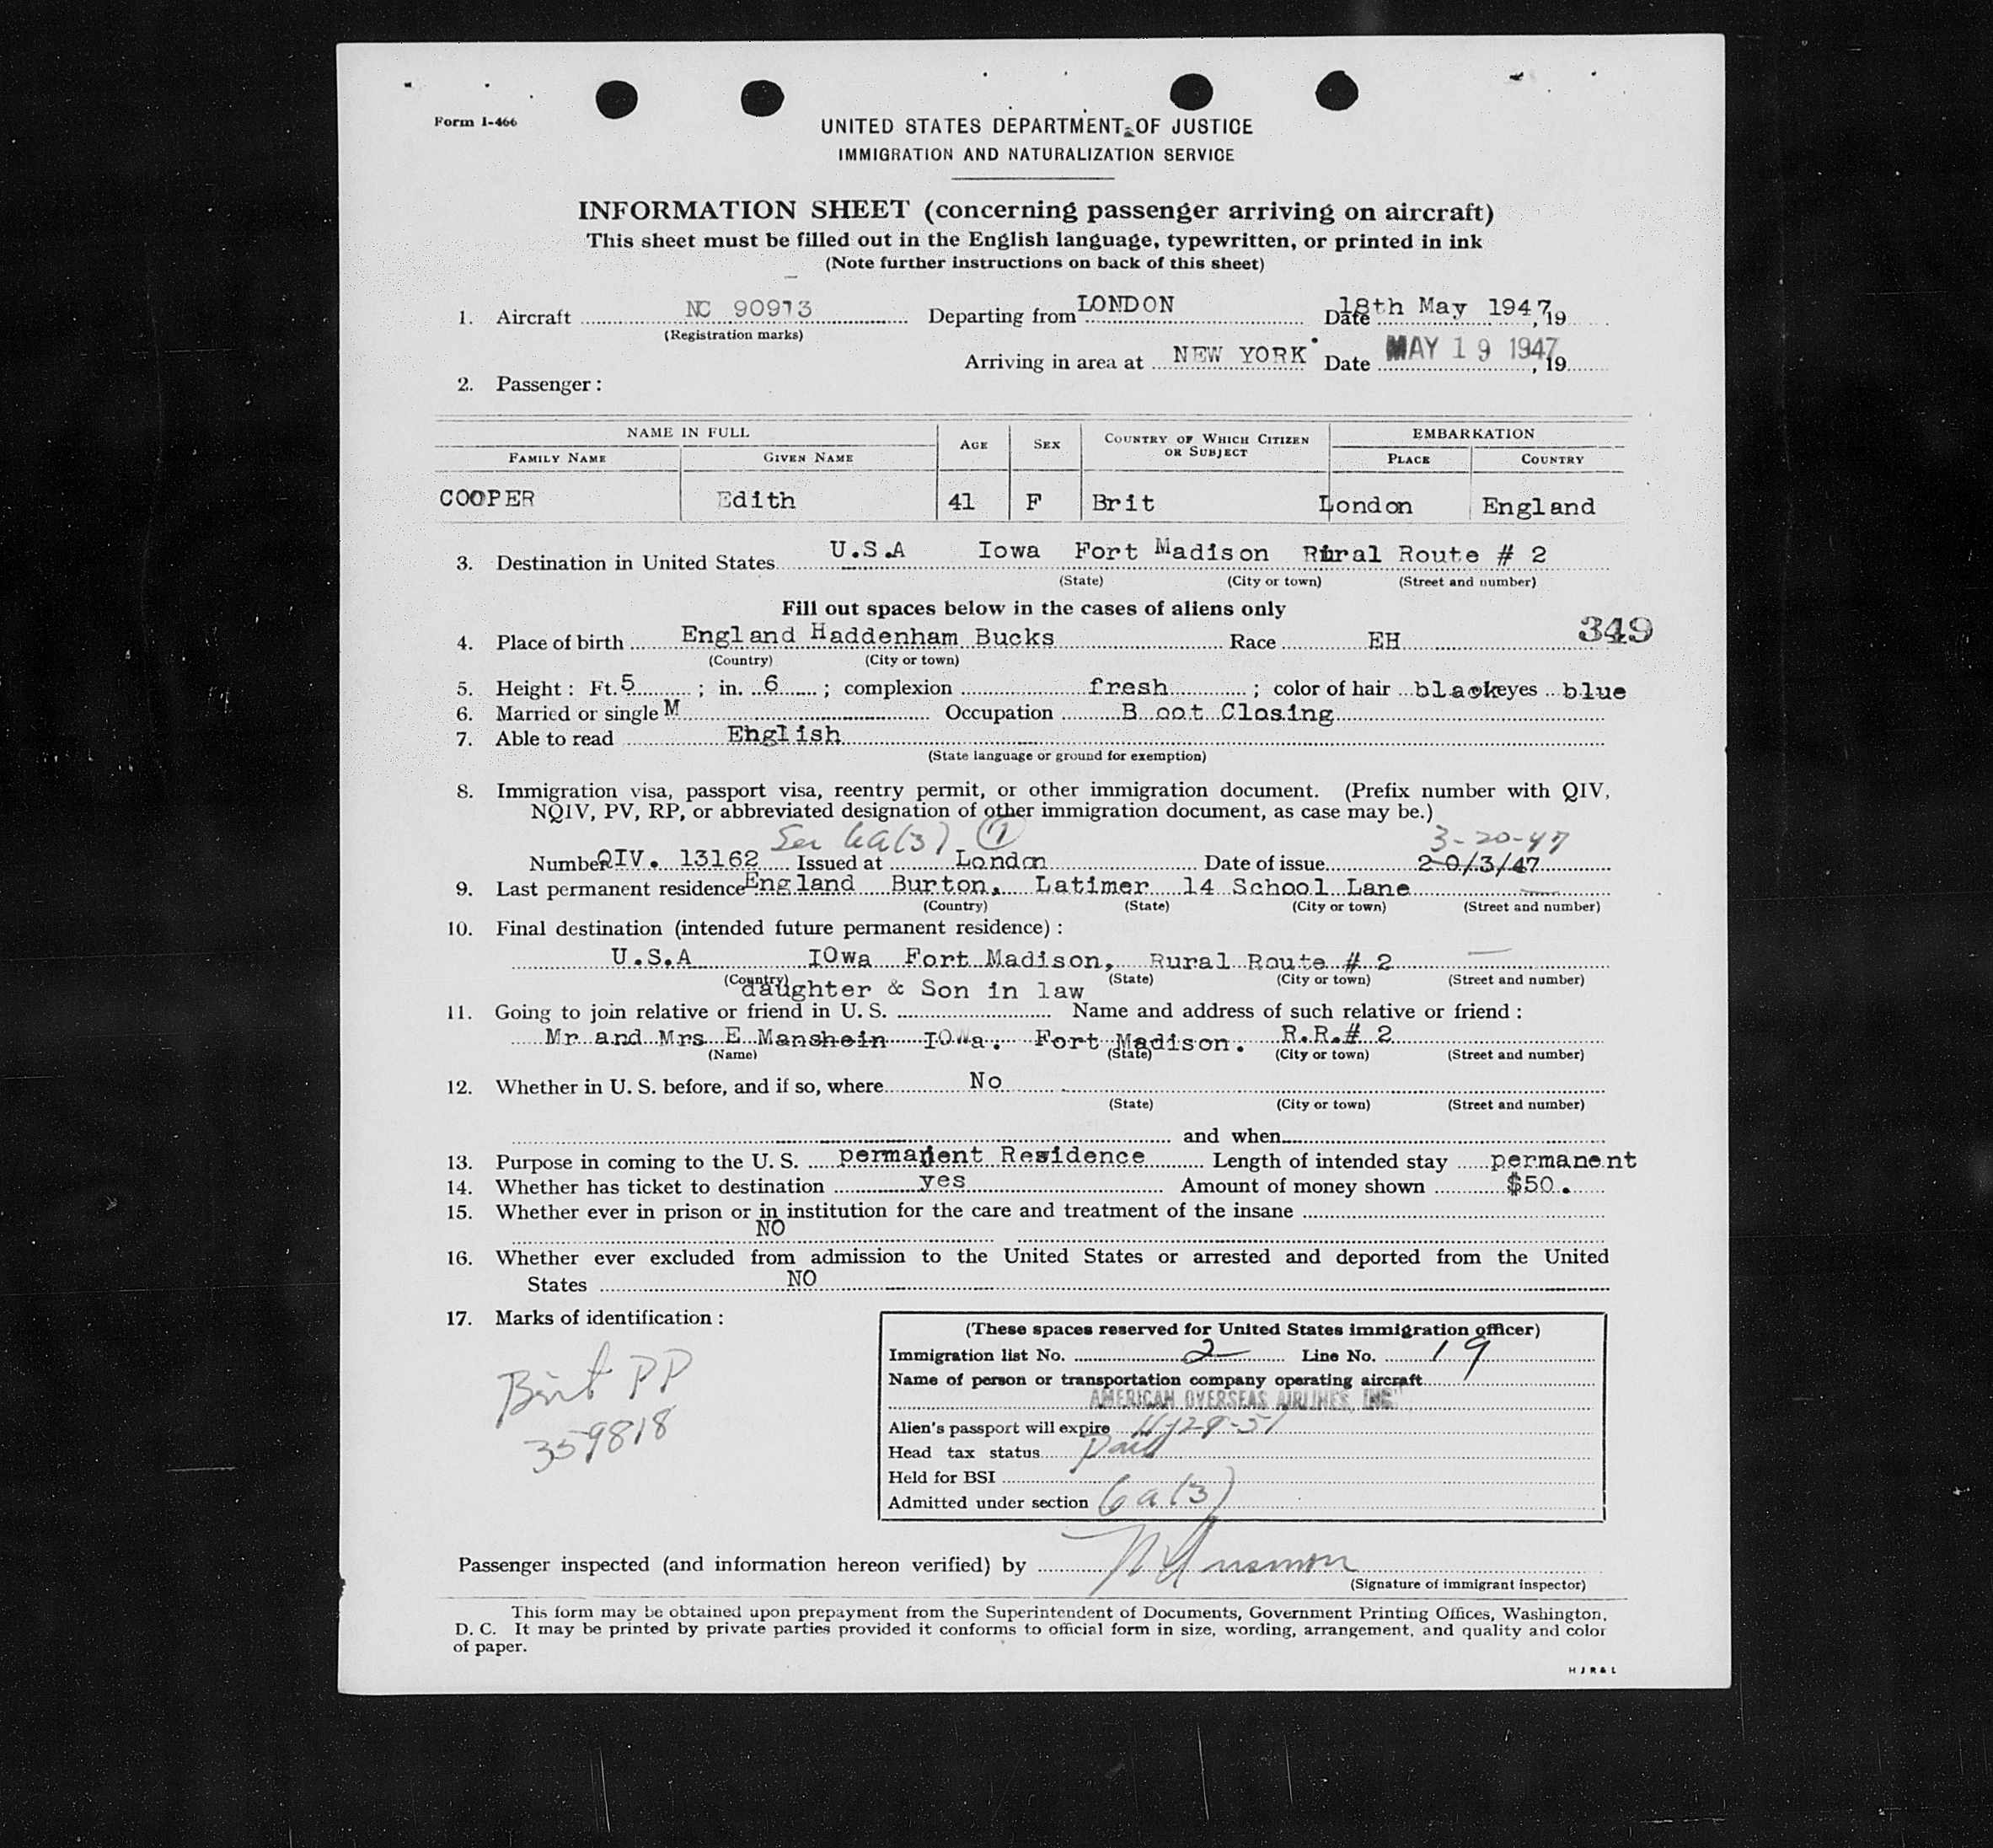 Form I-466
UNITED STATES DEPARTMENT OF JUSTICE
IMMIGRATION AND NATURALIZATION SERVICE
INFORMATION SHEET (concerning passenger arriving on aircraft)
This sheet must be filled out in the English language, typewritten, or printed in ink
(Note further instructions on back of this sheet)
1. Aircraft NC 90913 Departing from LONDON Date 18th May 1947, 19
(Registration marks)
Arriving in area at NEW YORK Date MAY 19 1947, 19
2. Passenger:
NAME IN FULL AGE SEX COUNTRY OF WHICH CITIZEN OR SUBJECT EMBARKATION
FAMILY NAME GIVEN NAME PLACE COUNTRY
COOPER Edith 41 F Brit London England
3. Destination in United States U.S.A Iowa Fort Madison Rural Route # 2
(State) (City or town) (Street and number)
Fill out spaces below in the cases of aliens only
349
4. Place of birth England Haddenham Bucks Race EH
(Country) (City or town)
5. Height: Ft. 5 ; in. 6 ; complexion fresh ; color of hair black eyes blue
6. Married or single M Occupation B oot Closing
7. Able to read English
(State language or ground for exemption)
8. Immigration visa, passport visa, reentry permit, or other immigration document. (Prefix number with QIV,
NQIV, PV, RP, or abbreviated designation of other immigration document, as case may be.)
Sec 6a(3) 1 3-20-47
Number QIV. 13162 Issued at London Date of issue 20/3/47
9. Last permanent residence England Burton, Latimer 14 School Lane
(Country) (State) (City or town) (Street and number)
10. Final destination (intended future permanent residence):
U.S.A IOwa Fort Madison, Rural Route # 2
(Country) (State) (City or town) (Street and number)
daughter & Son in law
11. Going to join relative or friend in U. S. Name and address of such relative or friend:
Mr and Mrs E Manshein IOwa. Fort Madison. R.R.# 2
(Name) (State) (City or town) (Street and number)
12. Whether in U. S. before, and if so, where No
(State) (City or town) (Street and number)
and when
13. Purpose in coming to the U. S. permanent Residence Length of intended stay permanent
14. Whether has ticket to destination yes Amount of money shown $50.
15. Whether ever in prison or in institution for the care and treatment of the insane
NO
16. Whether ever excluded from admission to the United States or arrested and deported from the United
States NO
17. Marks of identification:
Brit PP
359818
(These spaces reserved for United States immigration officer)
Immigration list No. 2 Line No. 19
Name of person or transportation company operating aircraft
AMERICAN OVERSEAS AIRLINES, INC
Alien's passport will expire
Head tax status Paid
Held for BSI
Admitted under section 6a(3)
Passenger inspected (and information hereon verified) by
(Signature of immigrant inspector)
This form may be obtained upon prepayment from the Superintendent of Documents, Government Printing Offices, Washington,
D. C. It may be printed by private parties provided it conforms to official form in size, wording, arrangement, and quality and color
of paper.
H J R & L